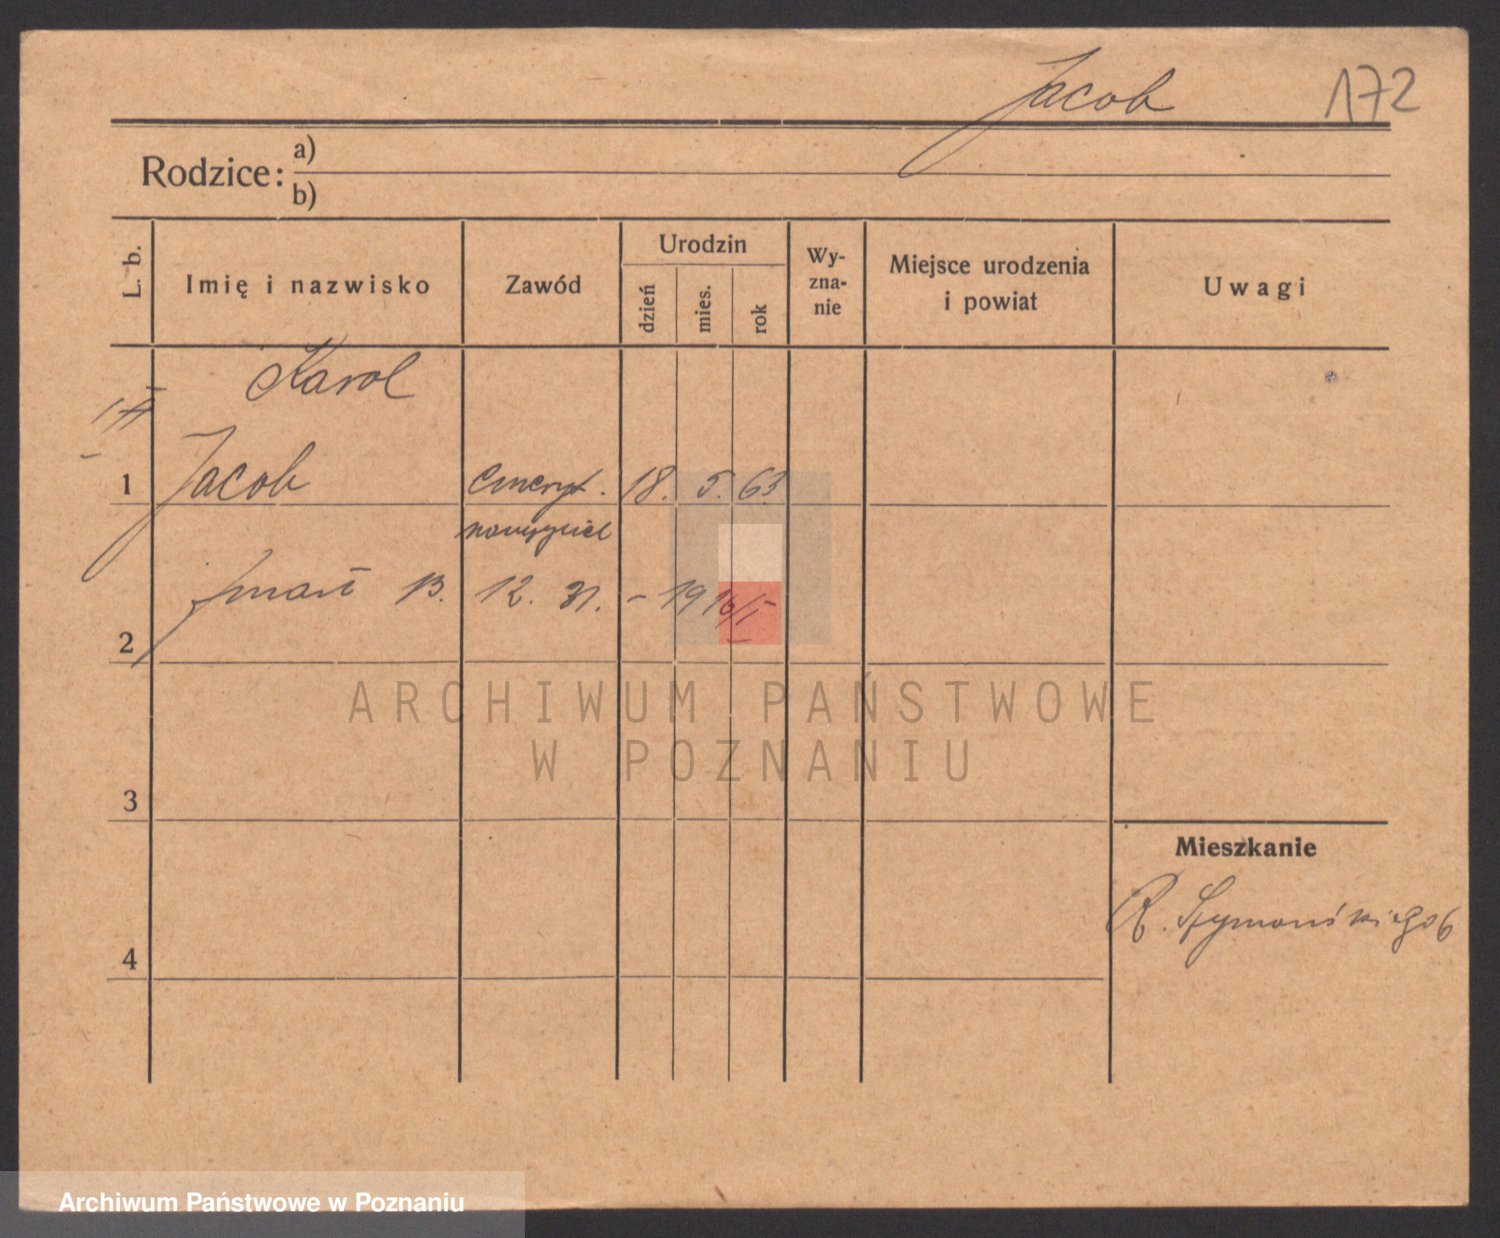 Jacob 172
Rodzice: a)
b)
L. b.
Imię i nazwisko
Zawód
Urodzin
dzień
mies.
rok
Wy-
zna-
nie
Miejsce urodzenia
i powiat
Uwagi
Karol
1 Jacob emeryt. 18. 5. 63
nauczyciel
zmarł 13. 12. 31. - 19
2
ARCHIWUM PAŃSTWOWE
W POZNANIU
3
Mieszkanie
R. Szymańskiego 6
4
Archiwum Państwowe w Poznaniu